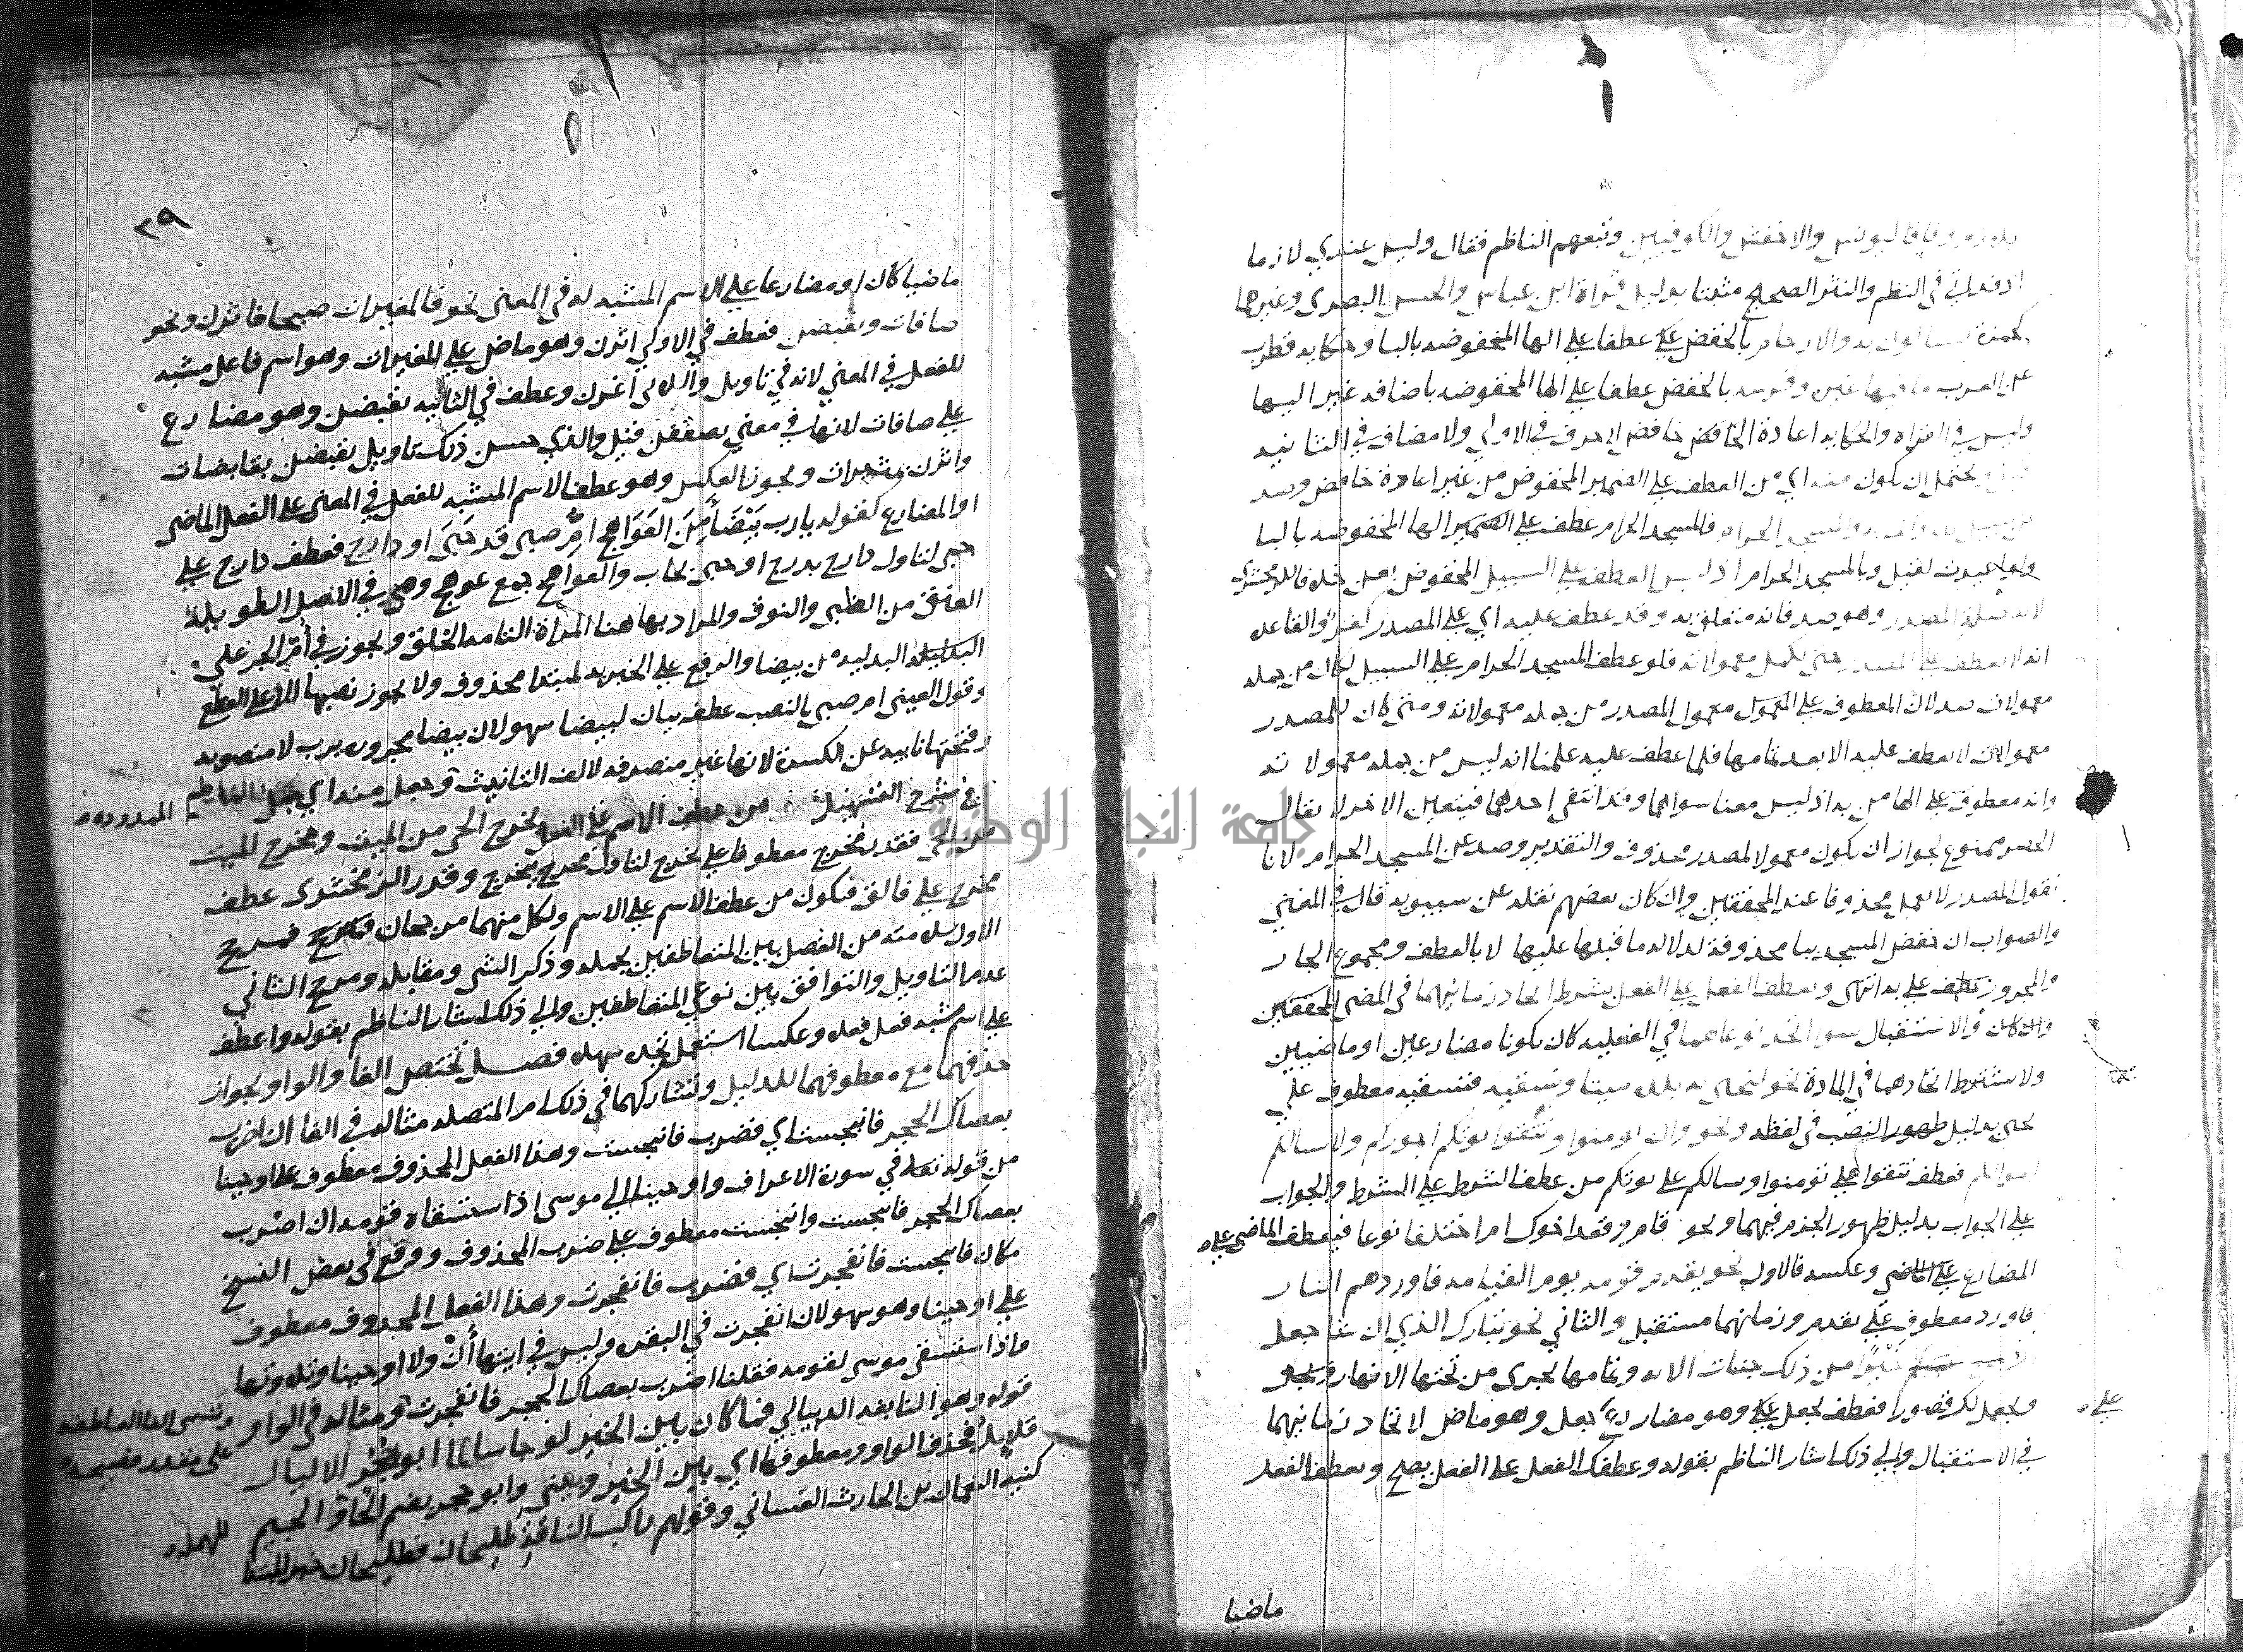 يلزم وفاقا ليونس والاخفش والكوفيين وتبعهم الناظم فقال وليس عندي لازما
اذ قد اتي في النظم والنثر الصحيح مثبتا بدليل قراة ابن عباس والحسن البصري وغيرهما
كحمزة تسالون به والارحام بالخفض عطفا علي الها المخفوضه بالبا وحكايه قطرب
عن العرب ما فيها غيره وفرسه بالخفض عطفا علي الها المخفوضه باضافه غير اليها
وليس في القراه والحكايه اعادة الخافض لا حرف في الاولي ولا مضاف في الثانيه
قيل ويحتمل ان يكون منه اي من العطف علي الضمير المخفوض من غير اعادة خافض وصد
عن سبيل الله وكفر به والمسجد الحرام فالمسجد الحرام عطف علي الضمير الها المخفوضه بالبا
ولو اعيدت لقيل وبالمسجد الحرام اذ ليس العطف علي السبيل المخفوض بعن خلافا للزمخشري
لانه صلة المصدر وهو صد فانه متعلق به وقد عطف عليه اي علي المصدر كفر والقاعده
انه لا يعطف علي المصدر حتي تكمل معمولاته فلو عطف المسجد الحرام علي السبيل لكان من جمله
معمولات صد لان المعطوف علي معمول المصدر من جمله معمولاته ومتي كان للمصدر
معمولات لا يعطف عليه الا بعد تمامها فلما عطف عليه علمنا انه ليس من جمله معمولاته
وانه معطوف علي الها من به اذ ليس معنا سواهما وقد انتفي احدهما فيتعين الاخر لا يقال
الحصر ممنوع لجواز ان يكون معمولا لمصدر محذوف والتقدير وصد عن المسجد الحرام لانا
نقول المصدر لا يعمل محذوفا عند المحققين وان كان بعضهم نقله عن سيبويه قال في المغني
والصواب ان خفض المسجد ببا محذوفة لدلاله ما قبلها عليها لا بالعطف ومجموع الجار
والمجرور عطف علي به انتهي ويعطف الفعل علي الفعل بشرط اتحاد زمانيهما في المضي
والاستقبال سوا اتحد نوعاهما في الفعليه كان يكونا مضارعين او ماضيين
ولا يشترط اتحادهما في المادة نحو لنحيي به بلدة ميتا ونسقيه فنسقيه معطوف علي
نحيي بدليل ظهور النصب في لفظه ونحو وان تومنوا وتتقوا يوتكم اجوركم ولا يسالكم
اموالكم فعطف تتقوا علي تومنوا ويسالكم علي يوتكم من عطف الشرط علي الشرط والجواب
علي الجواب بدليل ظهور الجزم فيهما ونحو قام وقعد اخوك ام اختلفا نوعا فيعطف الماضي علي
المضارع وعكسه فالاول نحو يقدم قومه يوم القيامه فاوردهم النار
فاورد معطوف علي يقدم وزمانهما مستقبل والثاني نحو تبارك الذي ان شا جعل
لك خيرا من ذلك جنات الايه وتمامها تجري من تحتها الانهار
ويجعل لك قصورا فعطف يجعل وهو مضارع علي جعل وهو ماض لاتحاد زمانيهما
في الاستقبال والي ذلك اشار الناظم بقوله وعطفك الفعل علي الفعل يصح ويعطف الفعل
ماضيا
٢٩
ماضيا كان او مضارعا علي الاسم المشبه له في المعني نحو فالمغيرات صبحا فاثرن ونحو
صافات ويقبضن فعطف في الاولي اثرن وهو ماض علي المغيرات وهو اسم فاعل مشبه
للفعل في المعني لانه في تاويل واللاتي اغرن وعطف في الثانيه يقبضن وهو مضارع
علي صافات لانها في معني يصففن قيل والذي حسن ذلك تاويل يقبضن بقابضات
واثرن بمثيرات ويجوز العكس وهو عطف الاسم المشبه للفعل في المعني علي الفعل الماضي
او المضارع كقوله يارب بيضا من العواهج ام صبي قد حبي او دارج فعطف دارج علي
حبي لتاول دارج بدرج او حبي بحاب والعواهج جمع عوهج وهي في الاصل الطويلة
العنق من الظبي والنوق والمراد بها هنا المراة التامه الخلق ويجوز في ام الجر علي
البدليه من بيضا والرفع علي الخبريه لمبتدا محذوف ولا يجوز نصبها الا علي القطع
وقول العيني ام صبي بالنصب عطف بيان لبيضا سهو لان بيضا مجروره برب لا منصوبه
وفتحتها نايبه عن الكسرة لانها غير منصرفه لالف التانيث وجعل منه اي جعل الناظم
الممدوده
في شرح التسهيل من عطف الاسم علي الفعل يخرج الحي من الميت ومخرج الميت
من الحي فقدر مخرج معطوفا علي يخرج لتاول مخرج بيخرج وقدر الزمخشري عطف
مخرج علي فالق فتكون من عطف الاسم علي الاسم ولكل منهما مرجحان فمرجح
الاول سلامته من الفصل بين المتعاطفين بجمله وذكر الشي ومقابله ومرجح الثاني
عدم التاويل والتوافق بين نوعي المتعاطفين والي ذلك اشار الناظم بقوله واعطف
علي اسم شبه فعل فعلا وعكسا استعمل تجده سهلا فصل تختص الفا والواو بجواز
حذفهما مع معطوفهما للدليل وتشاركهما في ذلك ام المتصله مثاله في الفا ان اضرب
بعصاك الحجر فانبجست اي فضرب فانبجست وهذا الفعل المحذوف معطوف علي اوحينا
من قوله تعالي في سورة الاعراف واوحينا الي موسي اذ استسقاه قومه ان اضرب
بعصاك الحجر فانبجست وانبجست معطوف علي ضرب المحذوف ووقع في بعض النسخ
مكان فانبجست فانفجرت اي فضرب فانفجرت وهذا الفعل المحذوف معطوف
علي اوحينا وهو سهو لان انفجرت في البقره وليس في ايتها أن ولا اوحينا وتلاوتها
واذ استسقي موسي لقومه فقلنا اضرب بعصاك الحجر فانفجرت ومثاله في الواو
وتسمي الفا العاطفه علي مقدر فصيحه
قوله وهو النابغه الذبياني فما كان بين الخير لو جا سالما ابو حجر الا ليال
قلايل فحذف الواو ومعطوفها اي بين الخير وبيني وابو حجر بضم الحا والجيم
المهمله
كنيه النعمان بن الحارث الغساني وقولهم راكب الناقة طليحان فطليحان خبر المبتدا
جامعة النجاح الوطنية